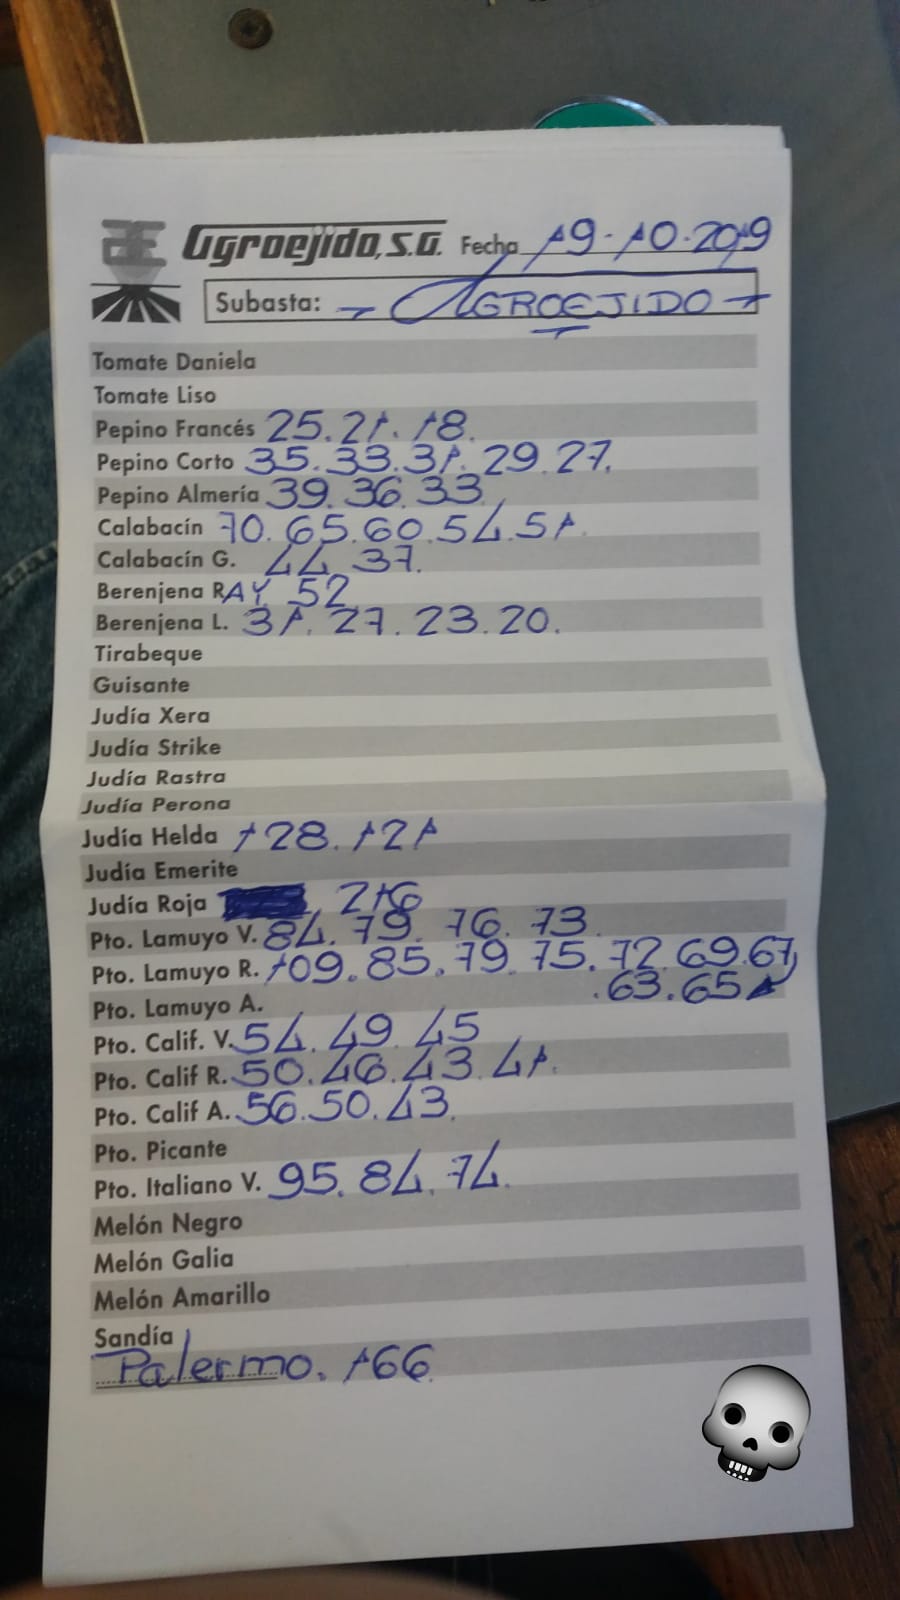 Agroejido, S.A. Fecha 19-10-2019
Subasta: - AGROEJIDO -
Tomate Daniela
Tomate Liso
Pepino Francés 25. 21. 18.
Pepino Corto 35. 33. 31. 29. 27.
Pepino Almería 39. 36. 33
Calabacín 70. 65. 60. 54. 51.
Calabacín G. 44 37.
Berenjena RAY 52
Berenjena L. 31. 27. 23. 20.
Tirabeque
Guisante
Judía Xera
Judía Strike
Judía Rastra
Judía Perona
Judía Helda 128. 121
Judía Emerite
Judía Roja 216
Pto. Lamuyo V. 84. 79. 76. 73
Pto. Lamuyo R. 109. 85. 79 75. 72 69. 67
.63.65
Pto. Lamuyo A.
Pto. Calif. V. 54. 49. 45
Pto. Calif R. 50. 46. 43. 41.
Pto. Calif A. 56. 50. 43.
Pto. Picante
Pto. Italiano V. 95. 84. 74.
Melón Negro
Melón Galia
Melón Amarillo
Sandía
Palermo. 166